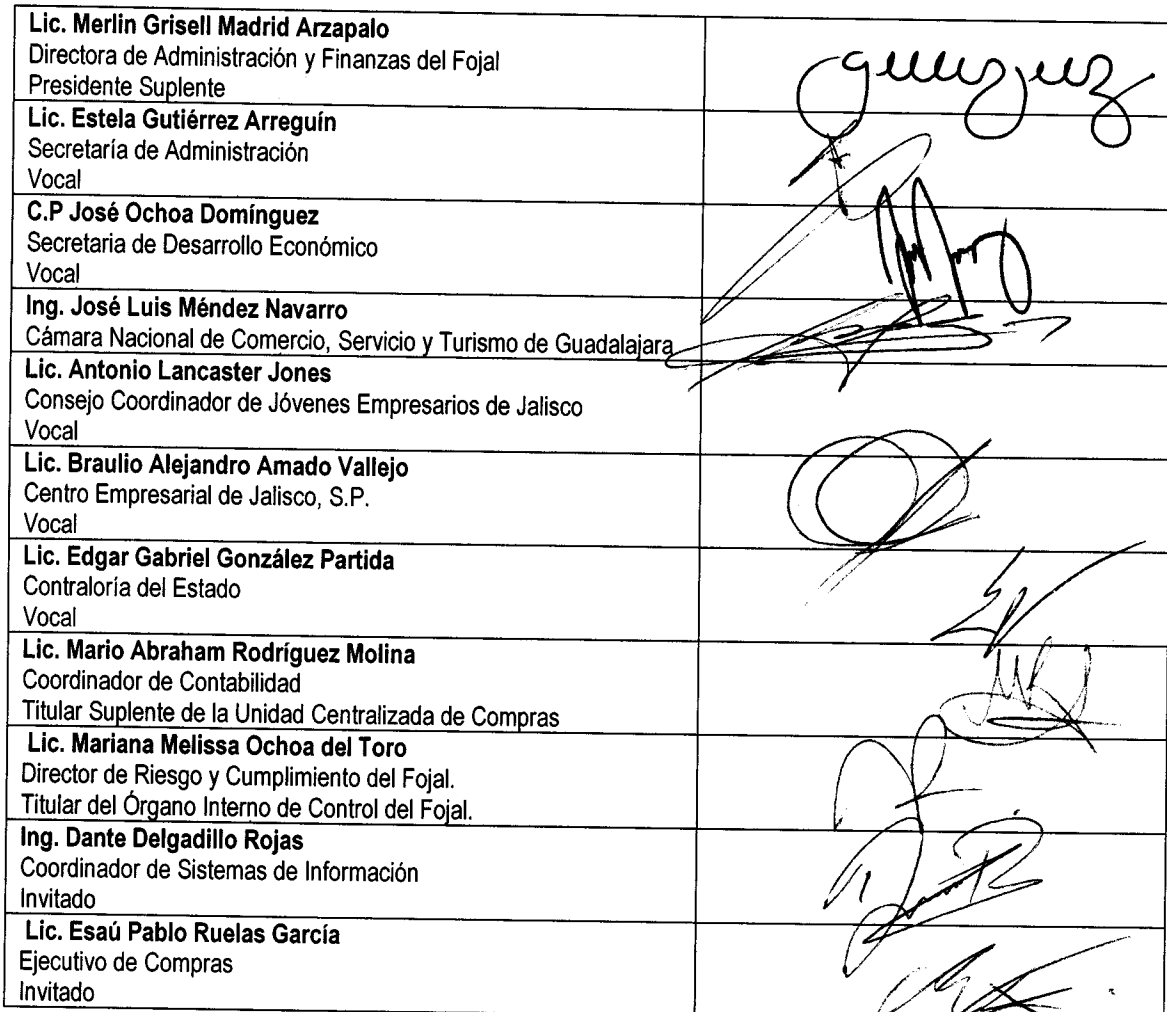 Lic. Merlin Grisell Madrid Arzapalo
Directora de Administración y Finanzas del Fojal
Presidente Suplente
Lic. Estela Gutiérrez Arreguín
Secretaría de Administración
Vocal
C.P José Ochoa Domínguez
Secretaria de Desarrollo Económico
Vocal
Ing. José Luis Méndez Navarro
Cámara Nacional de Comercio, Servicio y Turismo de Guadalajara
Lic. Antonio Lancaster Jones
Consejo Coordinador de Jóvenes Empresarios de Jalisco
Vocal
Lic. Braulio Alejandro Amado Vallejo
Centro Empresarial de Jalisco, S.P.
Vocal
Lic. Edgar Gabriel González Partida
Contraloría del Estado
Vocal
Lic. Mario Abraham Rodríguez Molina
Coordinador de Contabilidad
Titular Suplente de la Unidad Centralizada de Compras
Lic. Mariana Melissa Ochoa del Toro
Director de Riesgo y Cumplimiento del Fojal.
Titular del Órgano Interno de Control del Fojal.
Ing. Dante Delgadillo Rojas
Coordinador de Sistemas de Información
Invitado
Lic. Esaú Pablo Ruelas García
Ejecutivo de Compras
Invitado